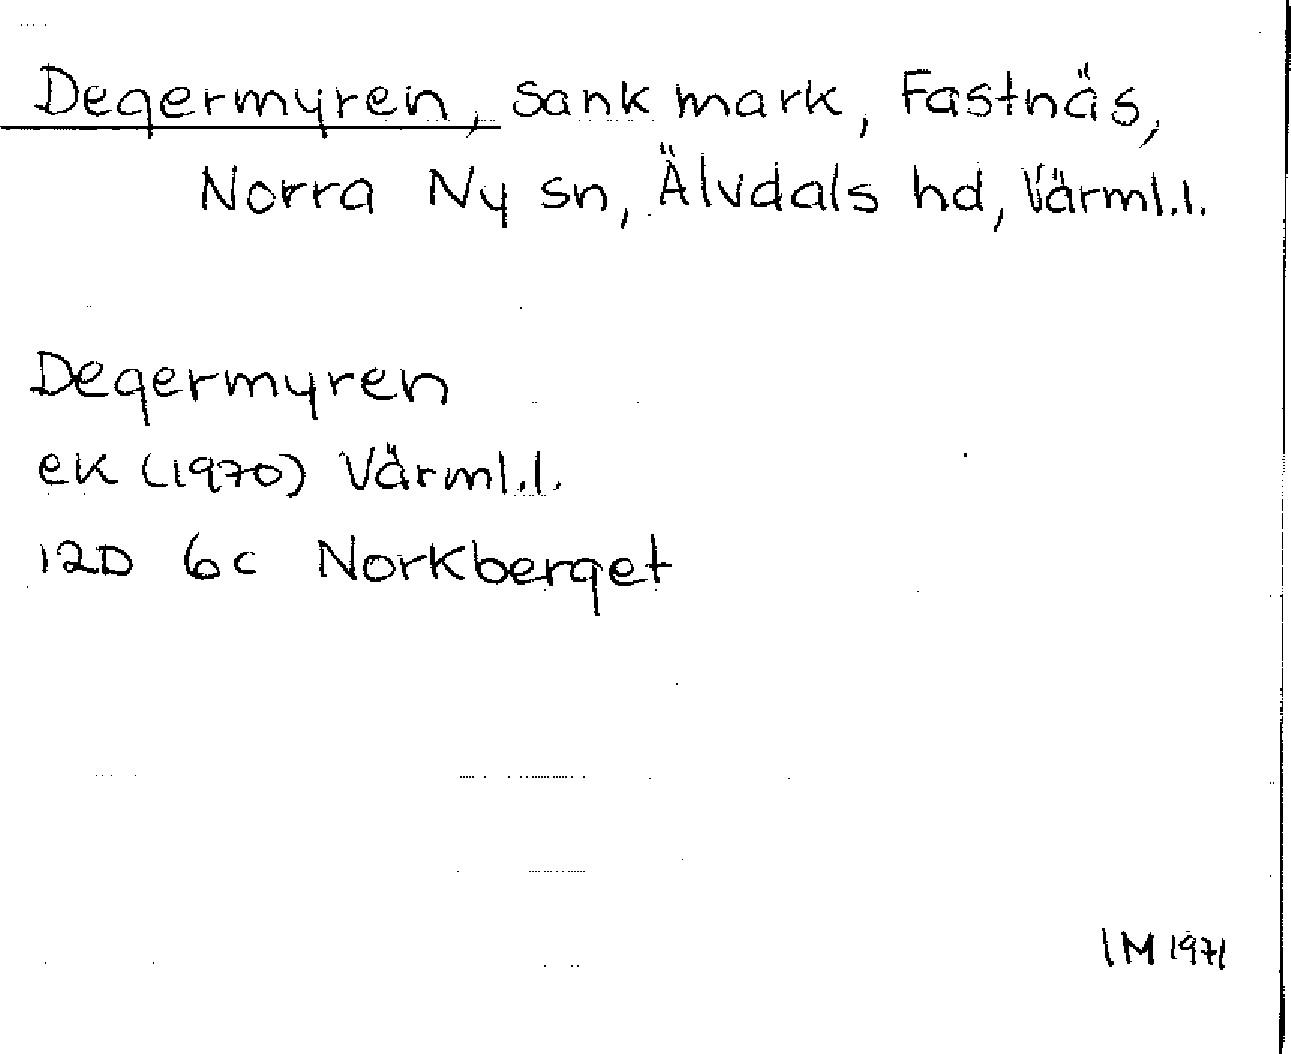 Degermyren, sank mark, Fastnäs,
Norra Ny sn, Älvdals hd, Värml.l.
Degermyren
ek (1970) Värml.l.
12D 6c Norkberget
IM 1971